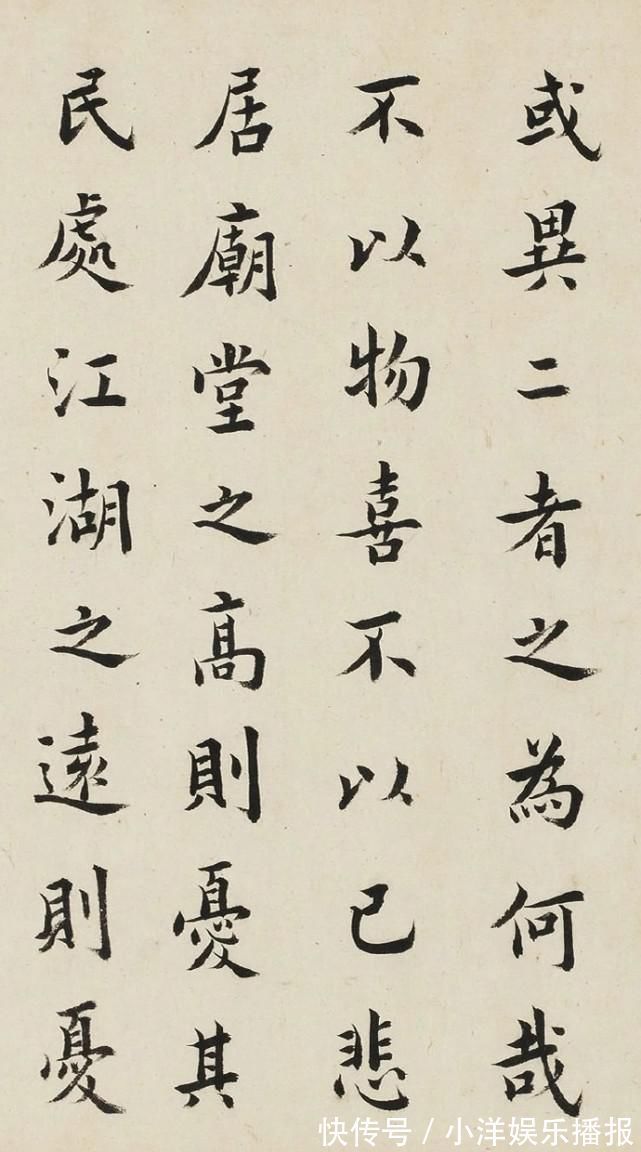 或異二者之為何哉
不以物喜不以己悲
居廟堂之高則憂其
民處江湖之遠則憂
快传号/小洋娱乐播报